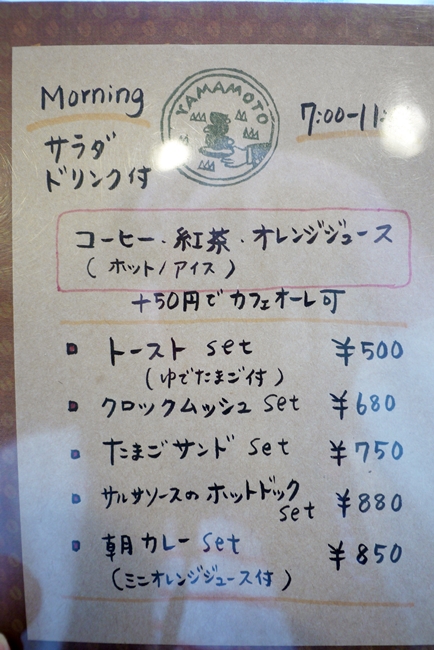 Morning
YAMAMOTO
7:00-11:
サラダ
ドリンク付
コーヒー・紅茶・オレンジジュース
(ホット/アイス)
+50円でカフェオーレ可
トースト set ¥500
(ゆでたまご付)
クロックムッシュ set ¥680
たまごサンド set ¥750
サルサソースのホットドック
set ¥880
朝カレー set ¥850
(ミニオレンジジュース付)